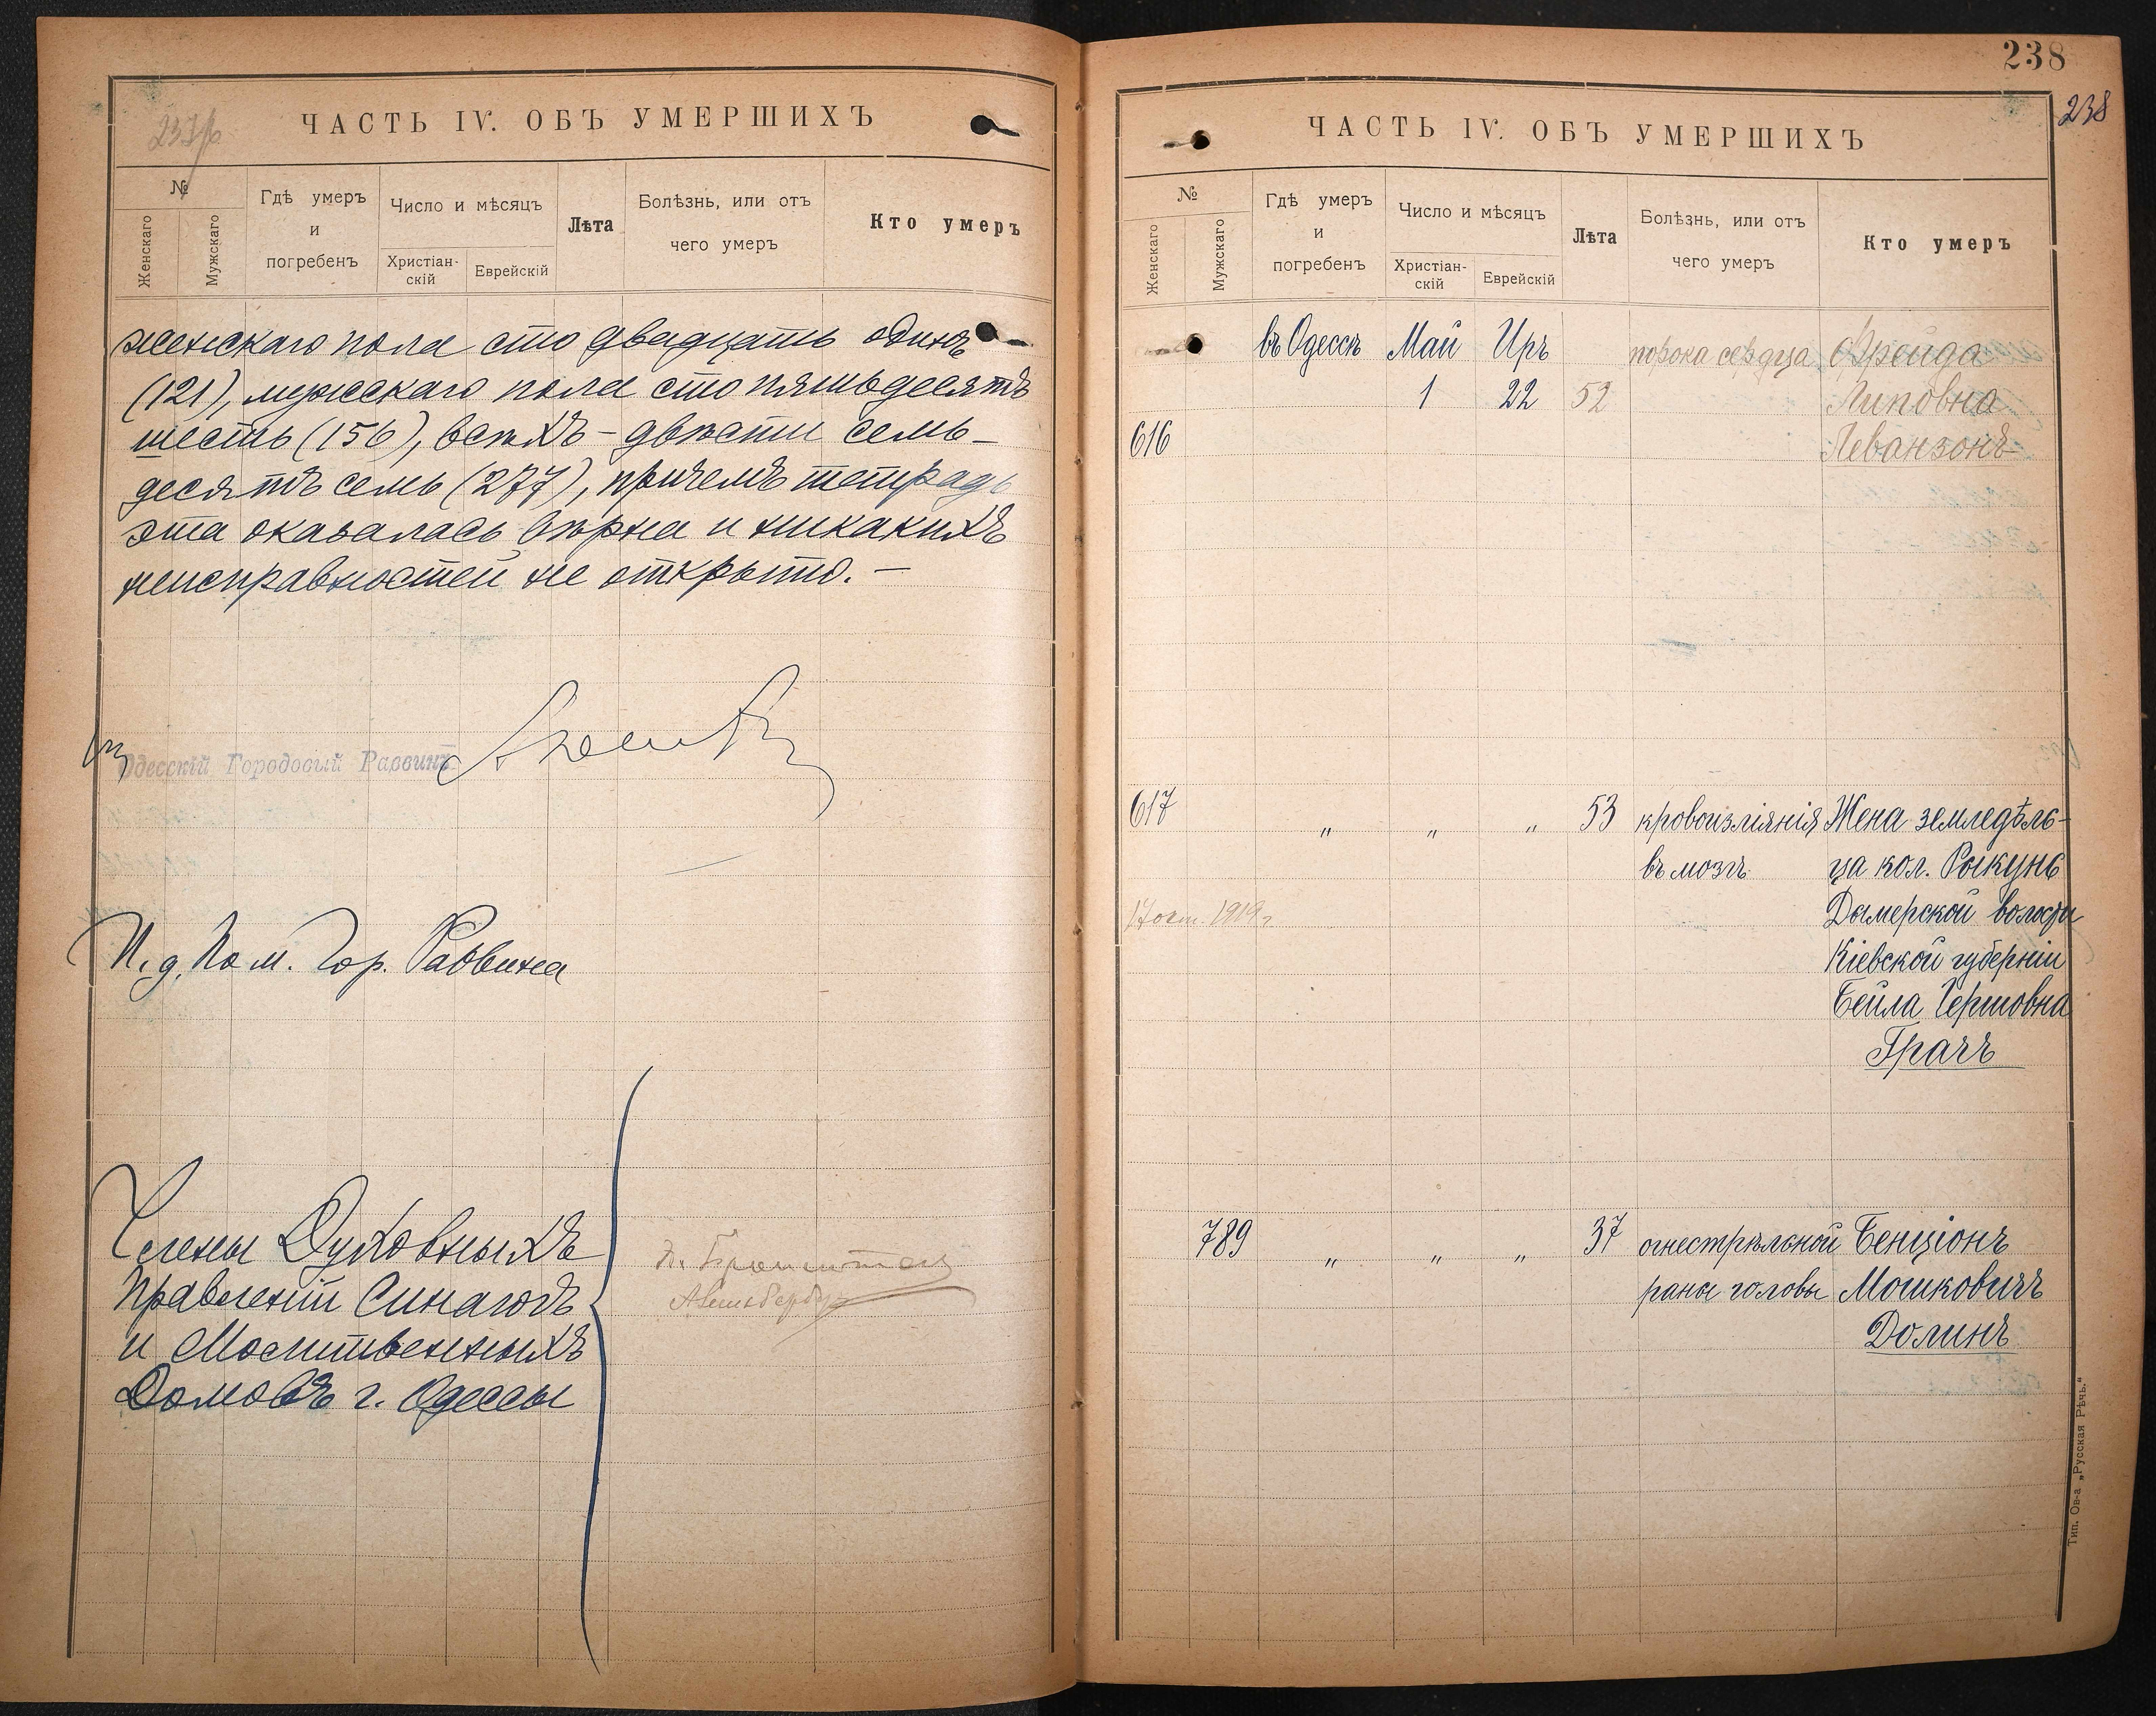 ЧАСТЬ IV. ОБЪ УМЕРШИХЪ
№
Женскаго
Мужскаго
Гдѣ умеръ
и
погребенъ
Число и мѣсяцъ
Христіан-
скій
Еврейскій
Лѣта
Болѣзнь, или отъ
чего умеръ
Кто умеръ
женскаго пола сто двадцать одинъ
(121), мужскаго пола сто пятьдесятъ
шесть (156), всѣхъ - двѣсти семь-
десятъ семь (277), причемъ тетрадь
эта оказалась вѣрна и никакихъ
неисправностей не открыто. —
Одесскій Городовый Раввинъ
И. д. Пом. Гор. Раввина
Члены Духовныхъ
Правленій Синагогъ
и Молитвенныхъ
Домовъ г. Одессы
238
238
ЧАСТЬ IV. ОБЪ УМЕРШИХЪ
№
Женскаго
Мужскаго
Гдѣ умеръ
и
погребенъ
Число и мѣсяцъ
Христіан-
скій
Еврейскій
Лѣта
Болѣзнь, или отъ
чего умеръ
Кто умеръ
въ Одессѣ Май Иръ порока сердца Фрейда
1 22 52 Липовна
616 Леванзонъ
617 „ „ „ 53 кровоизліянія Жена земледѣль-
въ мозгъ ца кол. Рыкунь
17 окт. 1919 г. Дымерской волости
Кіевской губерніи
Бейла Гершовна
Грачъ
789 „ „ „ 37 огнестрѣльной Бенціонъ
раны головы Мошковичъ
Долинъ
Тип. Ов-а „Русская Рѣчь."